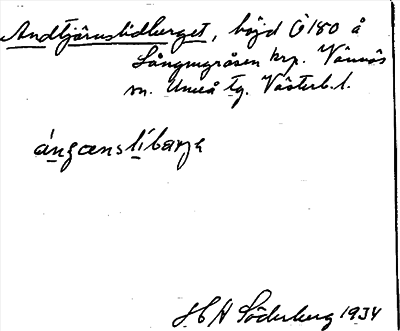 Andtjärnslidberget, höjd Ö 180 å
Långmyråsen krp. Vännäs
sn. Umeå tg. Västerb. l.
H Söderberg 1934